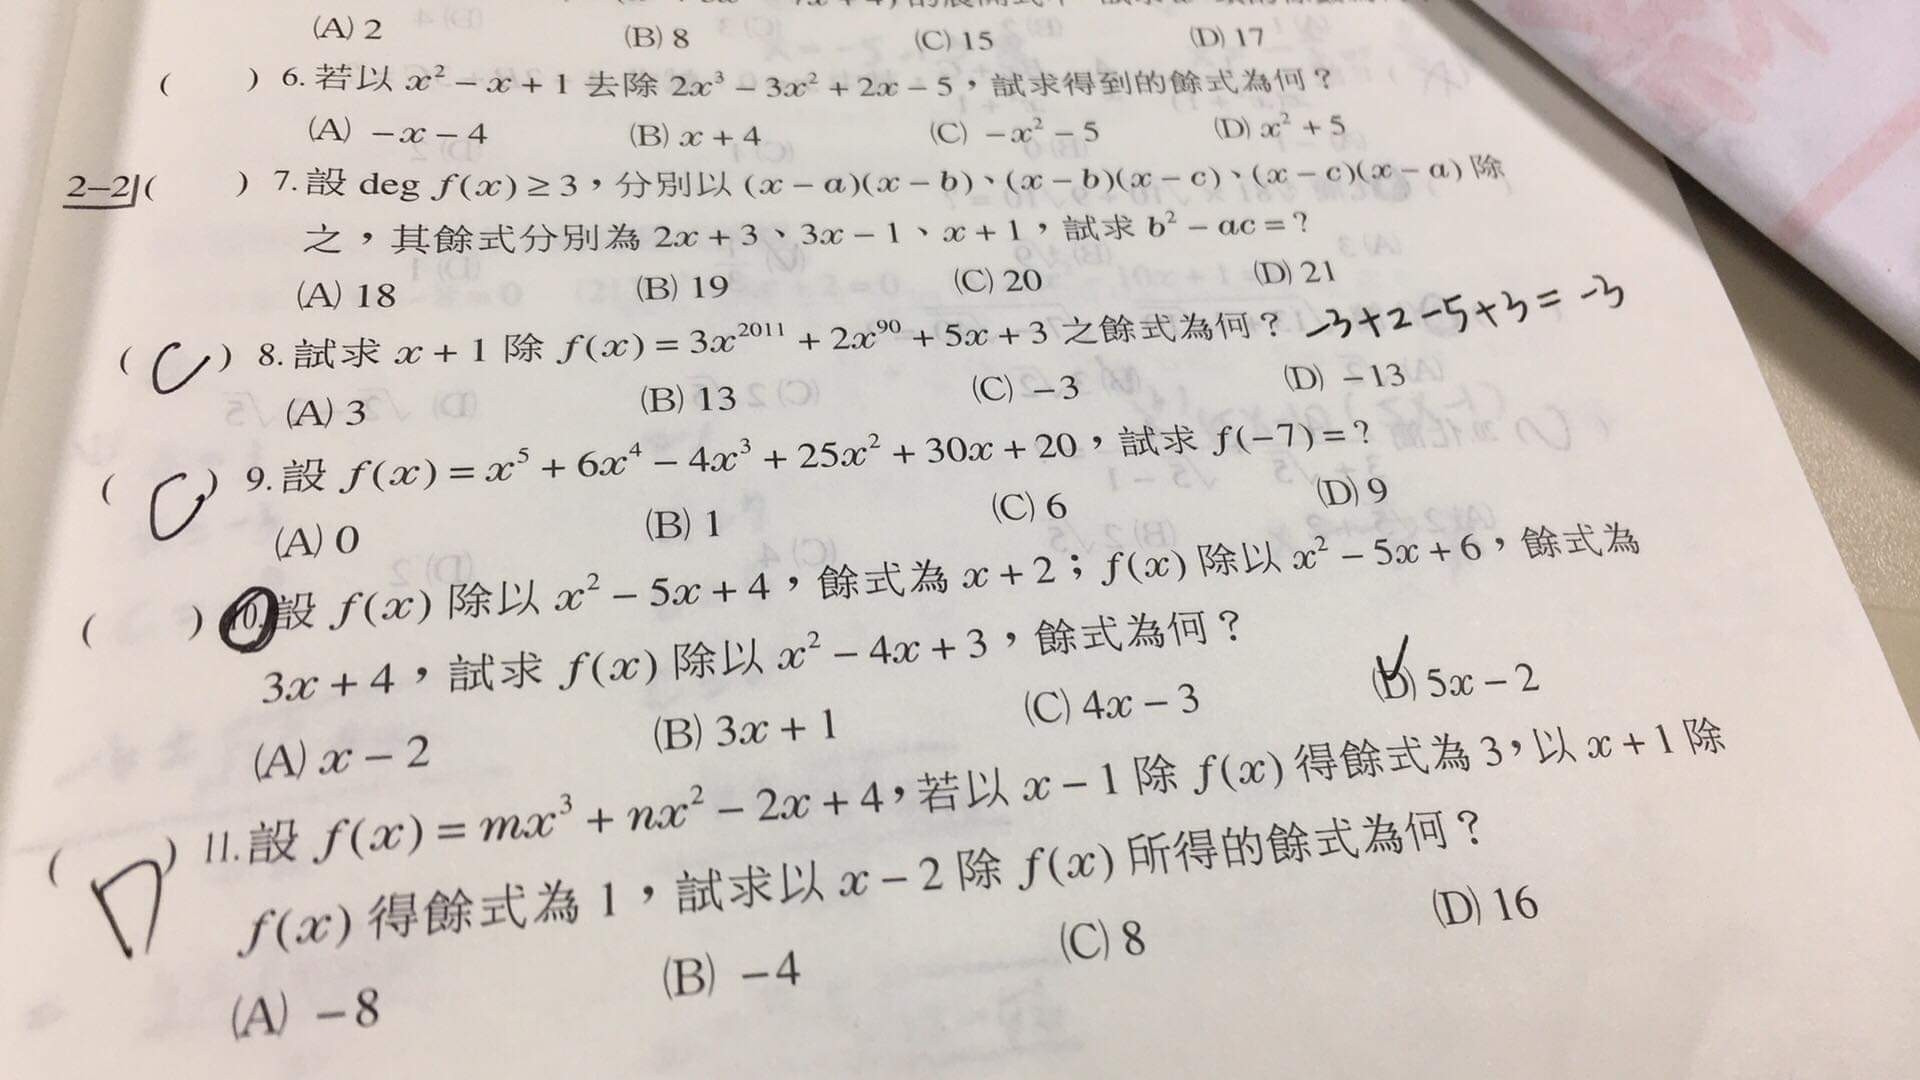 (A) 2 (B) 8 (C) 15 (D) 17
( ) 6. 若以 x² − x + 1 去除 2x³ − 3x² + 2x − 5，試求得到的餘式為何？
(A) −x − 4 (B) x + 4 (C) −x² − 5 (D) x² + 5
2−2 ( ) 7. 設 deg f(x) ≥ 3，分別以 (x − a)(x − b)、(x − b)(x − c)、(x − c)(x − a) 除
之，其餘式分別為 2x + 3、3x − 1、x + 1，試求 b² − ac = ?
(A) 18 (B) 19 (C) 20 (D) 21
( C ) 8. 試求 x + 1 除 f(x) = 3x²⁰¹¹ + 2x⁹⁰ + 5x + 3 之餘式為何？ −3+2−5+3 = −3
(A) 3 (B) 13 (C) −3 (D) −13
( C ) 9. 設 f(x) = x⁵ + 6x⁴ − 4x³ + 25x² + 30x + 20，試求 f(−7) = ?
(A) 0 (B) 1 (C) 6 (D) 9
( ) 10. 設 f(x) 除以 x² − 5x + 4，餘式為 x + 2；f(x) 除以 x² − 5x + 6，餘式為
3x + 4，試求 f(x) 除以 x² − 4x + 3，餘式為何？
(A) x − 2 (B) 3x + 1 (C) 4x − 3 (D) 5x − 2
( D ) 11. 設 f(x) = mx³ + nx² − 2x + 4，若以 x − 1 除 f(x) 得餘式為 3，以 x + 1 除
f(x) 得餘式為 1，試求以 x − 2 除 f(x) 所得的餘式為何？
(A) −8 (B) −4 (C) 8 (D) 16